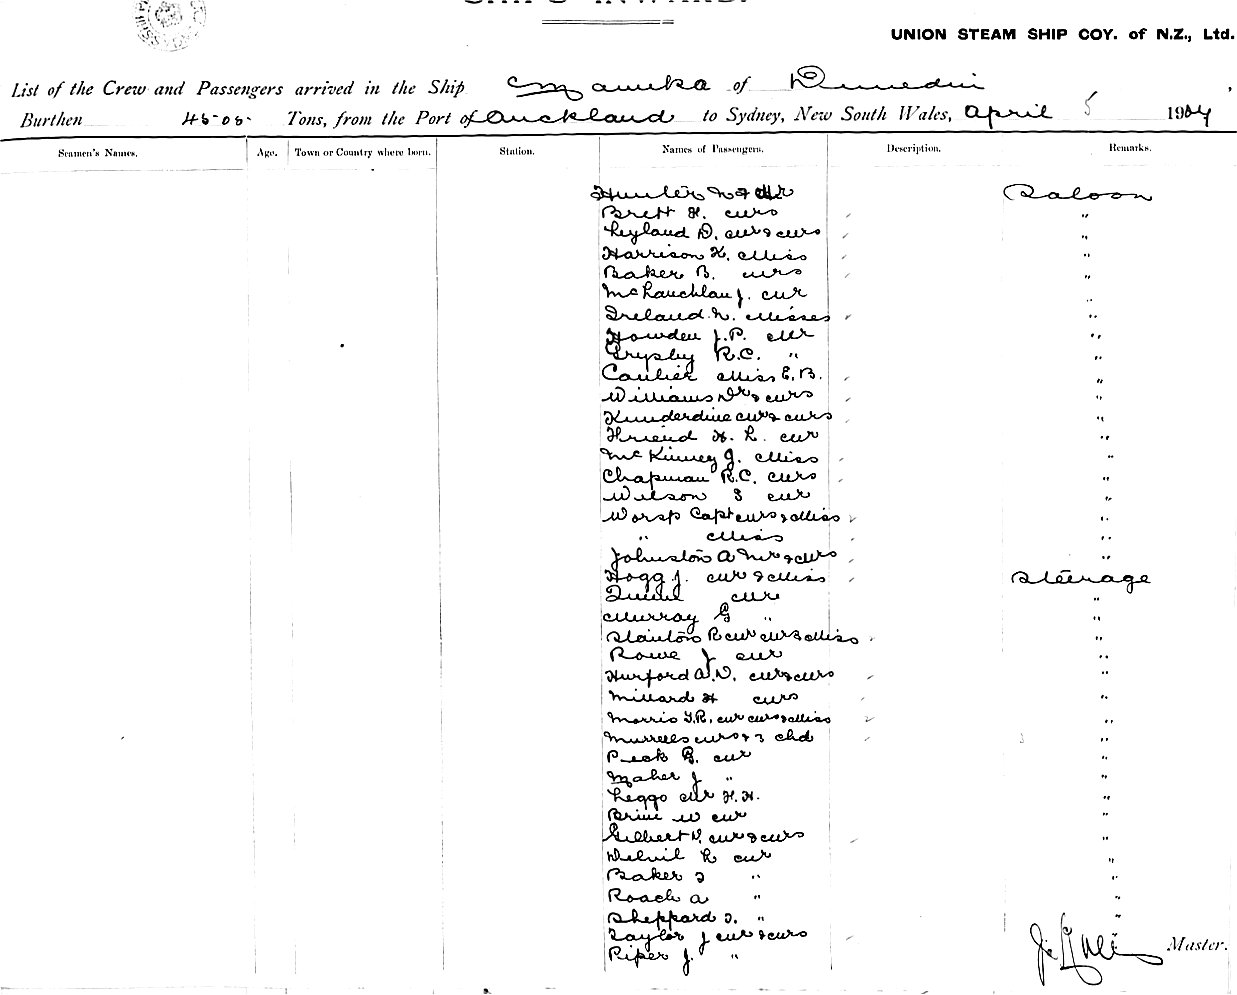 SHIPS INWARD.
UNION STEAM SHIP COY. of N.Z., Ltd.
List of the Crew and Passengers arrived in the Ship Manuka of Dunedin
Burthen 4505 Tons, from the Port of Auckland to Sydney, New South Wales, April 5 1904
Seamen's Names. Age. Town or Country where born. Station. Names of Passengers. Description. Remarks.
Hunter Mr Saloon
Brett H. Mrs "
Leyland D. Mr & Mrs "
Harrison K. Miss "
Baker B. Mrs "
McLauchlan J. Mr "
Ireland N. Misses "
Howden J.P. Mr "
R.C. " "
Caulier Miss E.B. "
Williams Dr & Mrs "
Kinderdine Mr & Mrs "
Friend H. L. Mr "
McKinney J. Miss "
Chapman R.C. Mrs "
Wilson Mr "
Worsp Capt Mrs & Miss "
" Miss "
Johnston A Mr & Mrs "
Hogg J. Mr & Miss Steerage
Mr "
Murray G " "
Stanton R Mr Mrs & Miss "
Rowe J Mr "
Hurford A.D. Mr & Mrs "
Millard H Mrs "
Morris T.R. Mr Mrs & Miss "
Murrells Mrs & 3 chd "
Peek G. Mr "
Maher J " "
Leggo Mr H.H. "
Brine W Mr "
Gilbert Mr & Mrs "
R Mr "
Baker " "
Roach A " "
Sheppard " "
Taylor J Mr & Mrs
Piper J. "
Master.